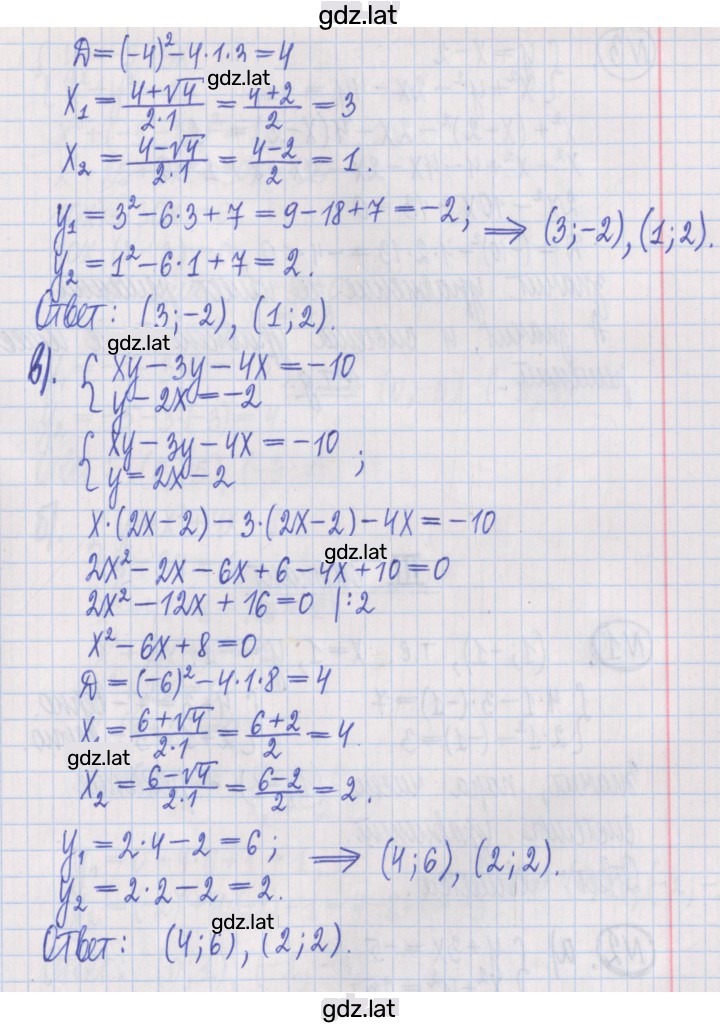 gdz.lat
D = (-4)² - 4·1·3 = 4
gdz.lat
x₁ = (4+√4)/(2·1) = (4+2)/2 = 3
x₂ = (4-√4)/(2·1) = (4-2)/2 = 1.
y₁ = 3² - 6·3 + 7 = 9 - 18 + 7 = -2; ⟹ (3;-2), (1;2).
y₂ = 1² - 6·1 + 7 = 2.
Ответ: (3;-2), (1;2).
gdz.lat
в). { xy - 3y - 4x = -10
y - 2x = -2
{ xy - 3y - 4x = -10 ;
y = 2x - 2
x·(2x-2) - 3·(2x-2) - 4x = -10
gdz.lat
2x² - 2x - 6x + 6 - 4x + 10 = 0
2x² - 12x + 16 = 0 |:2
x² - 6x + 8 = 0
D = (-6)² - 4·1·8 = 4
x₁ = (6+√4)/(2·1) = (6+2)/2 = 4.
gdz.lat
x₂ = (6-√4)/(2·1) = (6-2)/2 = 2.
y₁ = 2·4 - 2 = 6; ⟹ (4;6), (2;2).
y₂ = 2·2 - 2 = 2.
gdz.lat
Ответ: (4;6), (2;2).
gdz.lat